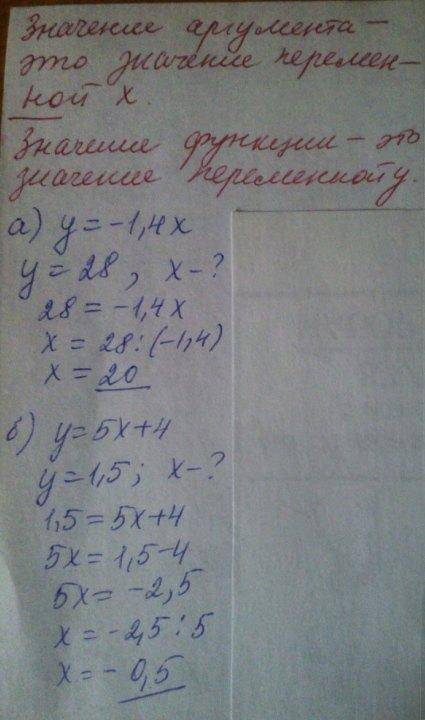 Значение аргумента –
это значение перемен-
ной х.
Значение функции – это
значение переменной у.
а) y = -1,4x
y = 28; x - ?
28 = -1,4x
x = 28 : (-1,4)
x = 20
б) y = 5x + 4
y = 1,5; x - ?
1,5 = 5x + 4
5x = 1,5 - 4
5x = -2,5
x = -2,5 : 5
x = -0,5